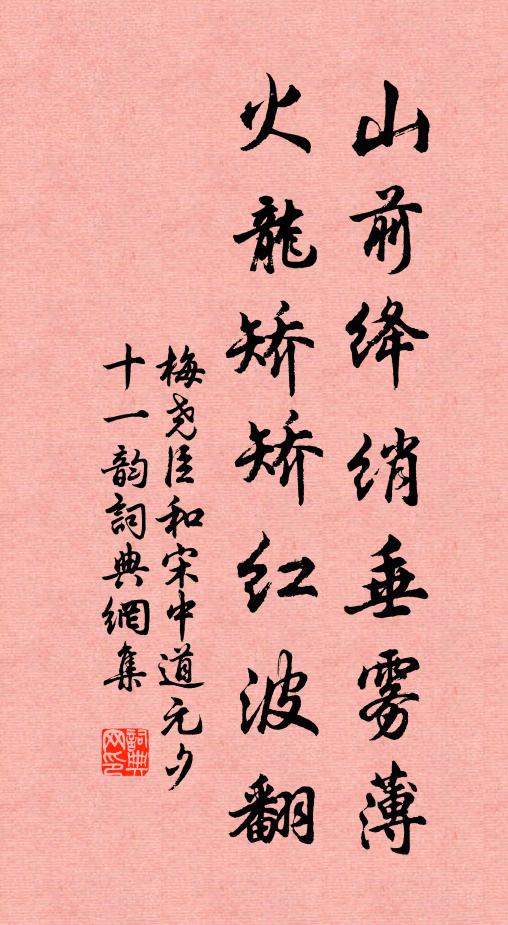 山前绛绡垂雾薄
火龍矫矫红波翻
梅尧臣和宋中道元夕
十一韵詞典網集
詞典
网印